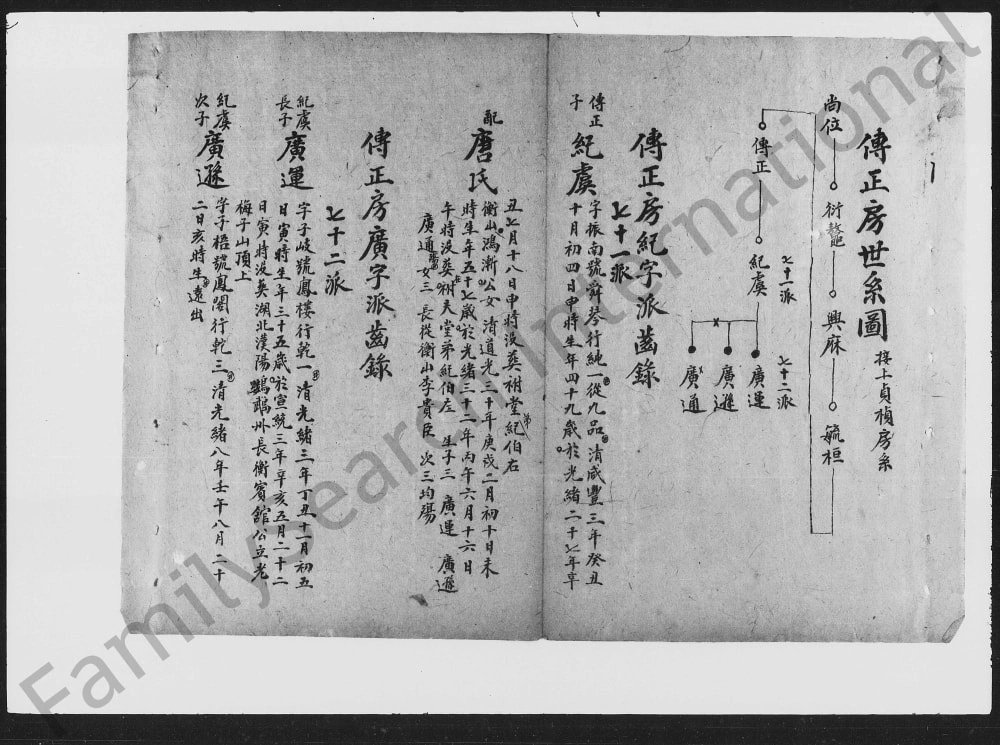 傳正房世系圖 接上貞楨房系
尚位 衍鼇 興麻 毓桓
傳正 紀虞 七十一派
廣運 廣遜 廣通 七十二派
傳正房紀字派齒錄
七十一派
傳正子 紀虞 字振南號舜琴行純一從九品清咸豐三年癸丑
十月初四日申時生年四十九歲於光緒二十七年辛
丑七月十八日申時沒葬祔堂弟紀伯右
配 唐氏 衡山鴻漸公女清道光三十年庚戌二月初十日未
時生年五十七歲於光緒三十二年丙午六月十六日
午時沒葬祔夫堂弟紀伯左 生子三 廣運 廣遜
廣通 女三 長從衡山李貴臣 次三均殤
傳正房廣字派齒錄
七十二派
紀虞長子 廣運 字子岐號鳳樓行乾一清光緒三年丁丑十一月初五
日寅時生年三十五歲於宣統三年辛亥五月二十二
日寅時沒葬湖北漢陽鸚鵡州長衡賓館公立老
梅子山頂上
紀虞次子 廣遜 字子梧號鳳閣行乾三清光緒八年壬午八月二十
二日亥時生遠出
FamilySearch International